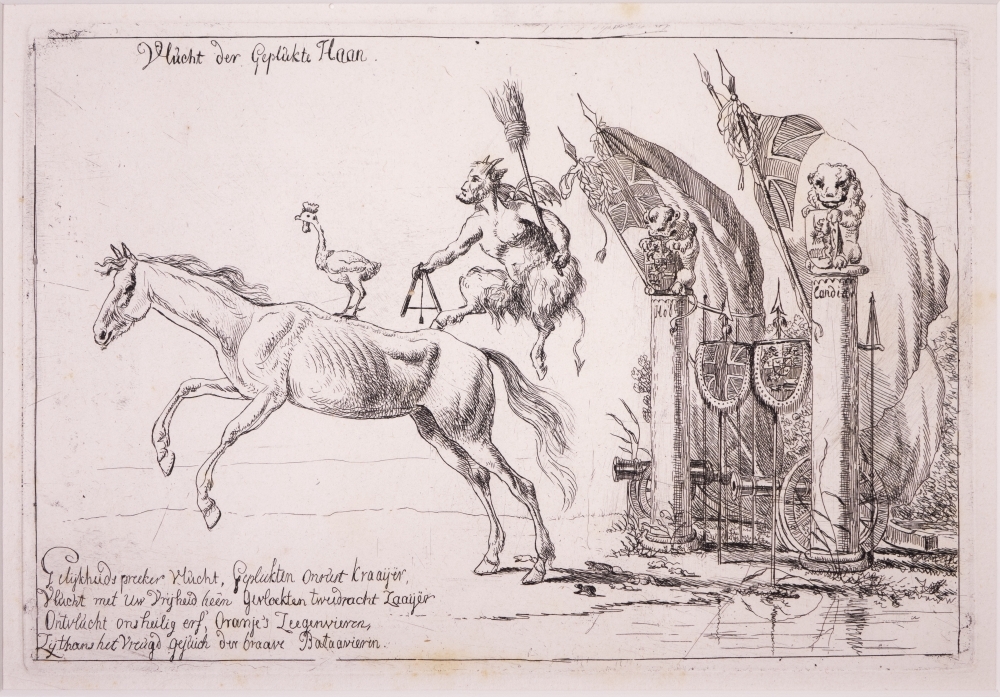 Vlucht der Geplukte Haan.
Hol
Gelijkheids preeker vlucht, Geplukten Onrust kraaijer,
Vlucht met uw Vrijheid heen Gevloekten tweedracht Zaaijer
Ontvlucht ons heilig erf, Oranje's Zeegenvieren,
Zij thans het Vreugd gejuich der braave Bataavieren.